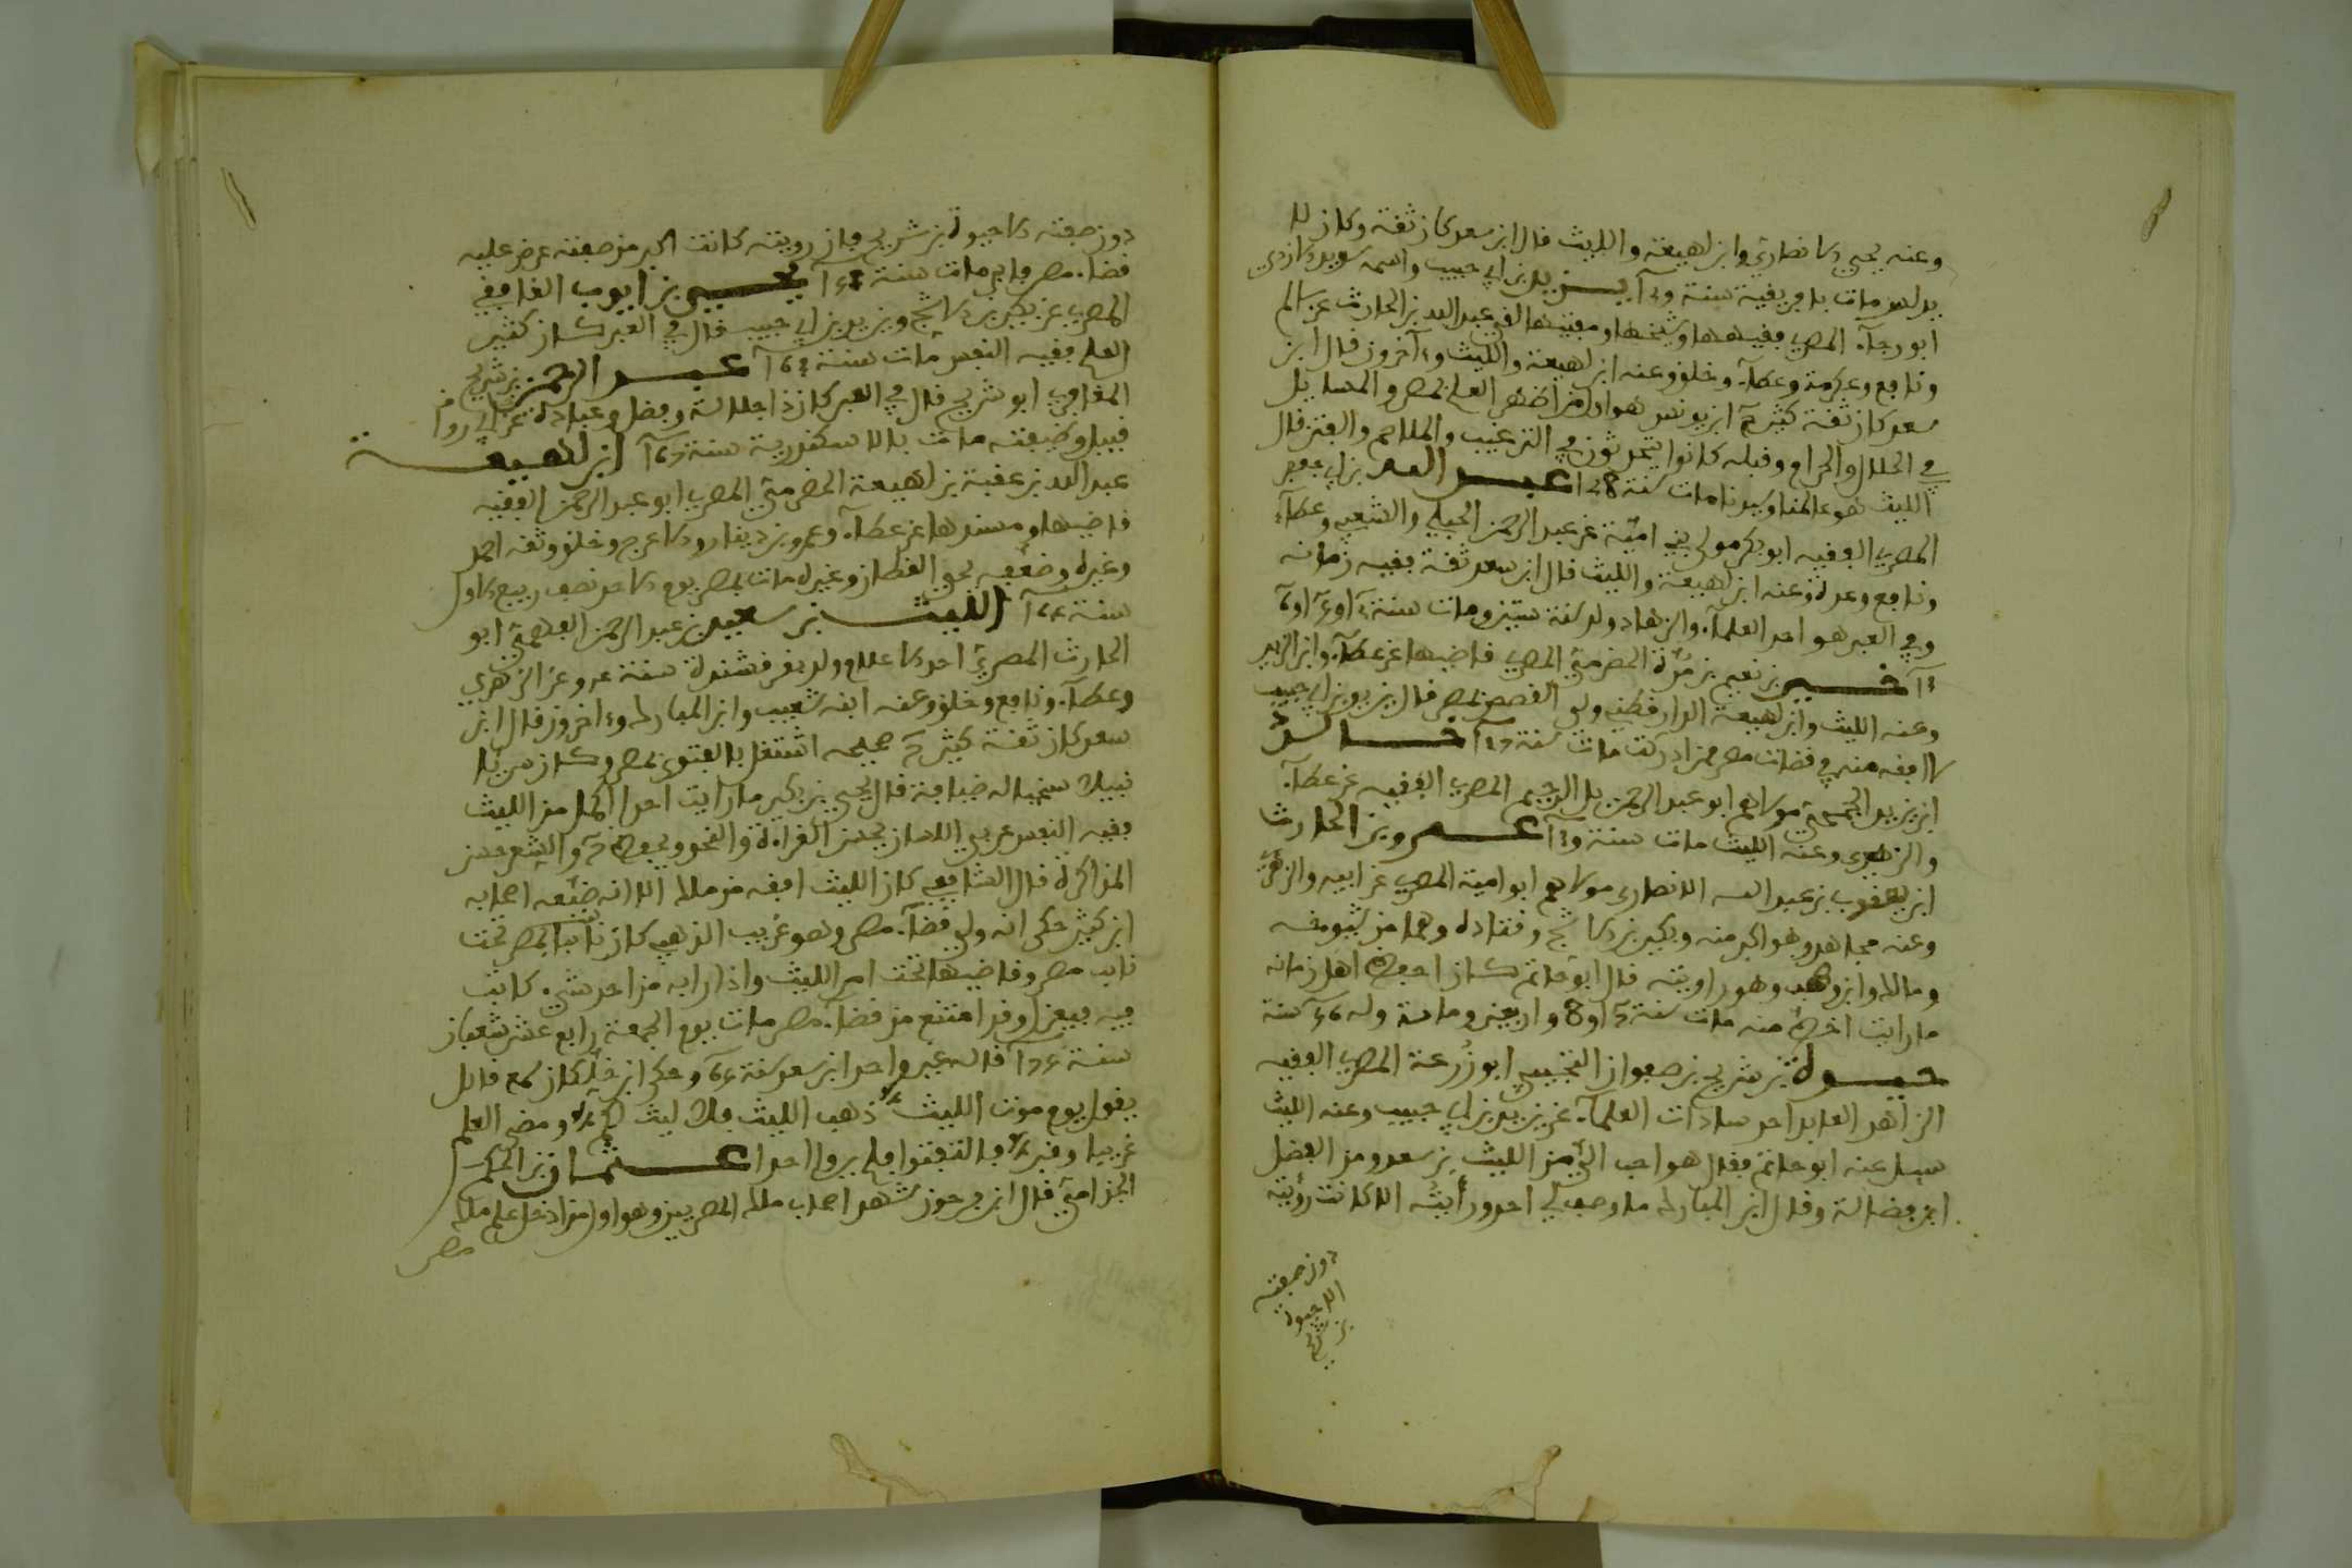 وعنه يحيى الانصاري وابن لهيعة والليث قال ابن سعد كان ثقة وكان لا
يدلس مات بافريقية سنة يزيد بن ابي حبيب واسمه سويد الازدي
ابو رجاء المصري فقيهها وشيخها ومفتيها لقي عبد الله بن الحارث عن سالم
ونافع وعكرمة وعطاء وخلق وعنه ابن لهيعة والليث وءاخرون قال ابن
سعد كان ثقة كثير ابن يونس هو اول من اظهر العلم بمصر والمسايل
في الحلال والحرام وقبله كانوا يتحدثون في الترغيب والملاحم والفتن قال
الليث هو عالمنا وسيدنا مات سنة 128 عبيد الله بن ابي جعفر
المصري الفقيه ابو بكر مولى بني امية عن عبد الرحمن الحبلي والشعبي وعطاء
ونافع وعدة وعنه ابن لهيعة والليث قال ابن سعد ثقة فقيه زمانه
وفي العبر هو احد العلماء والزهاد ولد سنة ستين ومات سنة
خير بن نعيم بن مرة الحضرمي المصري قاضيها عن عطاء وابن الزبير
وعنه الليث وابن لهيعة الدارقطني ولي القصص بمصر قال يزيد بن ابي حبيب
ما افقه منه في قضات مصر ممن ادركت مات سنة خالد
ابن يزيد الجمحي مولاهم ابو عبد الرحمن بل الرحيم المصري الفقيه عن عطاء
والزهري وعنه الليث مات سنة عمرو بن الحارث
ابن يعقوب بن عبد الله الانصاري مولاهم ابو امية المصري عن ابيه والزهري
وعنه مجاهد وهو اكبر منه وبكير بن الاشج وقتادة وهما من شيوخه
ومالك وابن وهب وهو راويته قال ابو حاتم كان احفظ اهل زمانه
ما رايت احفظ منه مات سنة 7 او 8 واربعين ومائة وله سنة
حيوة بن شريح بن صفوان التجيبي ابو زرعة المصري الفقيه
الزاهد العابد احد سادات العلماء عن يزيد بن ابي حبيب وعنه الليث
سيل عنه ابو حاتم فقال هو احب الي من الليث بن سعد ومن الفضل
ابن فضالة وقال ابن المبارك ما وصف لي احد ورأيته الا كانت رؤيته
دون صفته
الا حيوة
بن شريح
دون صفته الا حيوة بن شريح فان رويته كانت اكبر من صفته عرض عليه
قضاء مصر فابى مات سنة يحيى بن ايوب الغافقي
المصري عن بكير بن الاشج ويزيد بن ابي حبيب قال في العبر كان كثير
العلم فقيه النفس مات سنة عبد الرحمن بن شريح
المعافري ابو شريح قال في العبر كان ذا جلالة وفضل وعبادة عن ابي
قبيل وطبقته مات بالاسكندرية سنة 167 ابن لهيعة
عبد الله بن عقبة بن لهيعة الحضرمي المصري ابو عبد الرحمن الفقيه
قاضيها ومسندها عن عطاء وعمرو بن دينار والاعرج وخلق وثقه احمد
وغيره وضعفه يحيى القطان وغيره مات بمصر يوم الاحد نصف ربيع الاول
سنة الليث بن سعيد بن عبد الرحمن الفهمي ابو
الحارث المصري احد الاعلام ولد بقرقشندة سنة روى عن الزهري
وعطاء ونافع وخلق وعنه ابنه شعيب وابن المبارك وءاخرون قال ابن
سعد كان ثقة كثير صحيحه اشتغل بالفتوى بمصر وكان سريا
نبيلا سخيا له ضيافة قال يحيى بن بكير ما رايت احدا اكمل من الليث
فقيه النفس عربي اللسان يحسن القراءة والنحو ويحفظ والشعر حسن
المذاكرة قال الشافعي كان الليث افقه من مالك الا انه ضيعه اصحابه
ابن كثير حكى انه ولي قضاء مصر وهو غريب الذهبي كان نائب مصر تحت
نايب مصر وقاضيها تحت امر الليث واذا رابه من احد شيء كاتب
فيه فيعزل وقد امتنع من قضاء مصر مات يوم الجمعة رابع عشر شعبان
سنة قاله غير واحد ابن سعد سنة وحكى ابن خلكان سمع قائل
يقول يوم موت الليث ذهب الليث فلا ليث لكم ومضى العلم
غريبا وقبر فالتفتوا فلم يروا احدا عثمان بن الحكم
الجذامي قال ابن فرحون شهر اصحاب مالك المصريين وهو اول من ادخل علم مالك
مصر